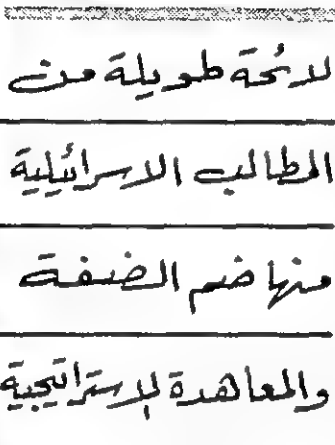 لائحة طويلة من
المطالب الاسرائيلية
منها ضم الضفة
والمعاهدة الاستراتيجية